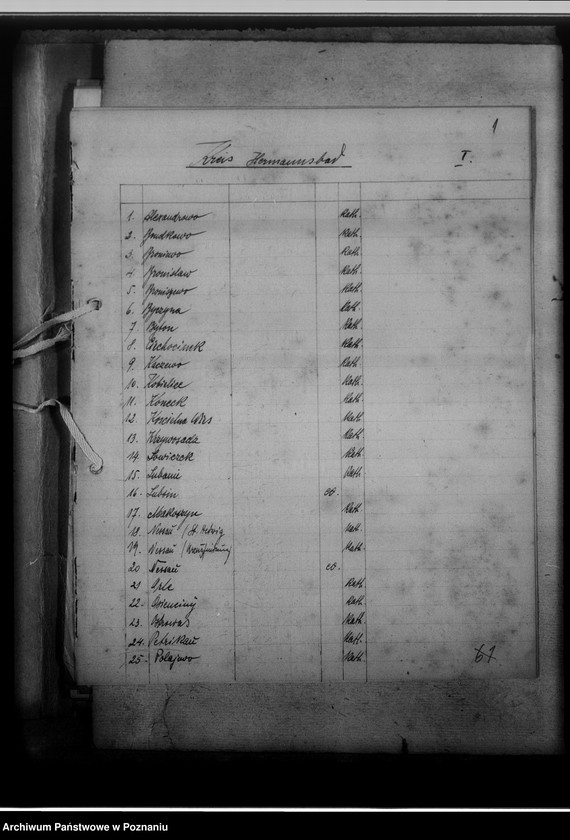 1
Kreis Hermannsbad
I.
1. Alexandrowo Kath.
2. Bondkowo Kath.
3 Broniewo Kath.
4 Bronislaw Kath.
5. Broniszewo Kath.
6. Byczyna Kath.
7 Byton Kath.
8. Ciechocinek Kath.
9. Kath.
10. Kobielice Kath.
11. Koneck Kath.
12. Koscielna Wies Kath.
13. Krzywosadz Kath.
14. Lowiczek Kath.
15. Lubanie Kath.
16. Lubsin ev.
17. Makoszyn Kath.
18. Nessau (St. Hedwig Kath.
19. Nessau (Kreuzfindung Kath.
20 Nessau ev.
21 Orle Kath.
22. Osienciny Kath.
23. Ostrowas Kath.
24. Petrikau Kath.
25. Kath.
61
Archiwum Państwowe w Poznaniu